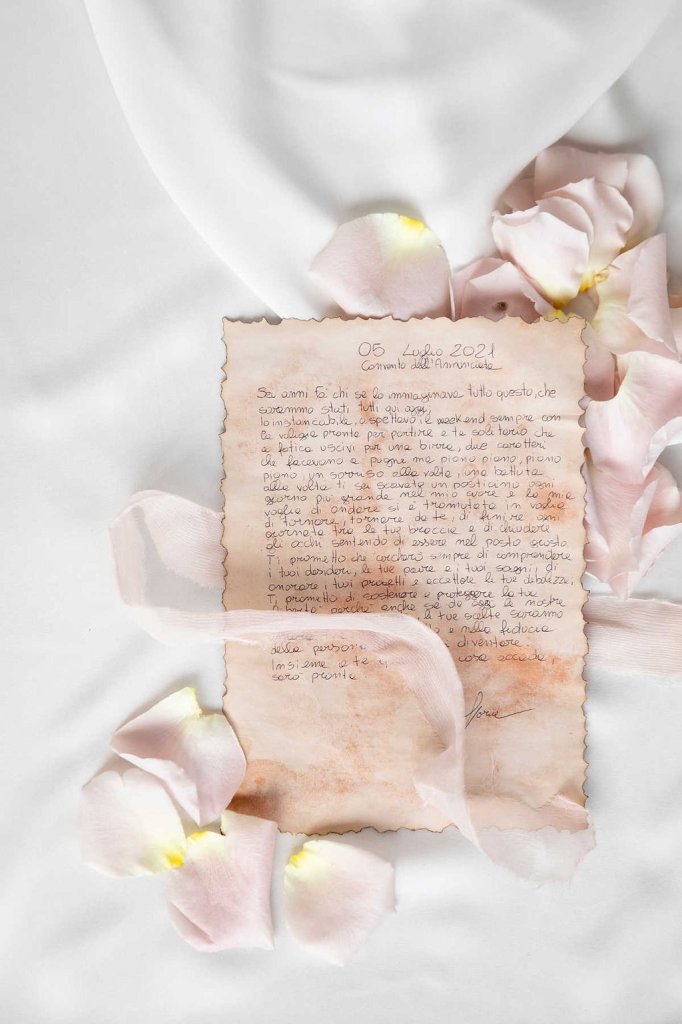 05 Luglio 2021
Convento dell'Annunciata
Sei anni fa chi se lo immaginava tutto questo, che
saremmo stati tutti qui oggi;
Io instancabile, aspettavo i weekend sempre con
la valigia pronta per partire e te solitario che
a fatica uscivi per una birra, due caratteri
che facevano a pugni ma piano piano, piano
piano, un sorriso alla volta, una battuta
alla volta ti sei scavato un posticino ogni
giorno più grande nel mio cuore e la mia
voglia di andare si è tramutata in voglia
di tornare, tornare da te, di finire ogni
giornata tra le tue braccia e di chiudere
gli occhi sentendo di essere nel posto giusto.
Ti prometto che cercherò sempre di comprendere
i tuoi desideri, le tue paure e i tuoi sogni, di
onorare i tuoi progetti e accettare le tue debolezze,
Ti prometto di sostenere e proteggere la tua
libertà perché anche se da oggi le nostre
le tue scelte saranno
e nella fiducia
della persona diventare.
Insieme a te cosa accada
sarò pronta